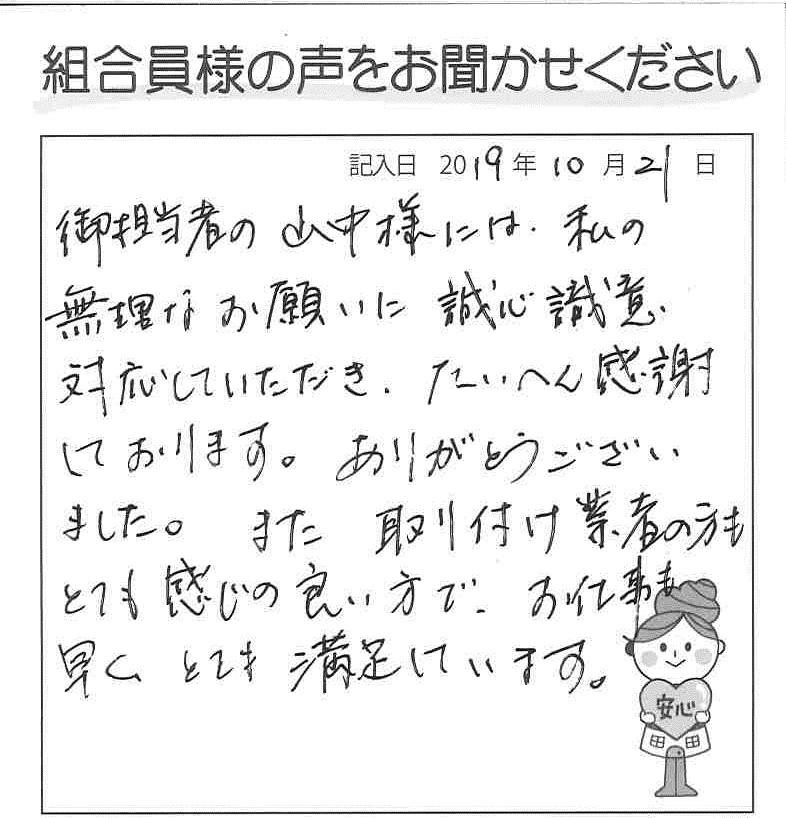 組合員様の声をお聞かせください
記入日 2019年10月21日
御担当者の 山中様には、私の
無理なお願いに 誠心識意、
対応していただき、たいへん感謝
しております。ありがとうござい
ました。また 取り付け業者の方も
とても感じの良い方で、お仕事も
早く とても満足しています。
安心